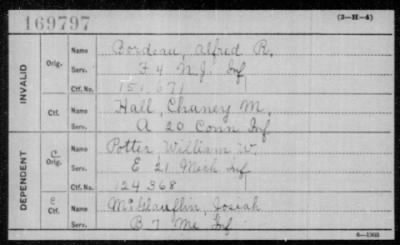 169797 (3-H-4)
INVALID
Orig. Name Bordeau, Alfred R.
Serv. F 4 N.J. Inf
Ctf. No. 151,671
Ctf. Name Hall, Chaney M.
Serv. A 20 Conn Inf
DEPENDENT
C Orig. Name Potter William W.
Serv. E 21 Mich Inf
Ctf. No. 124368
C Ctf. Name McGlauflin, Josiah
Serv. B 7 Me Inf